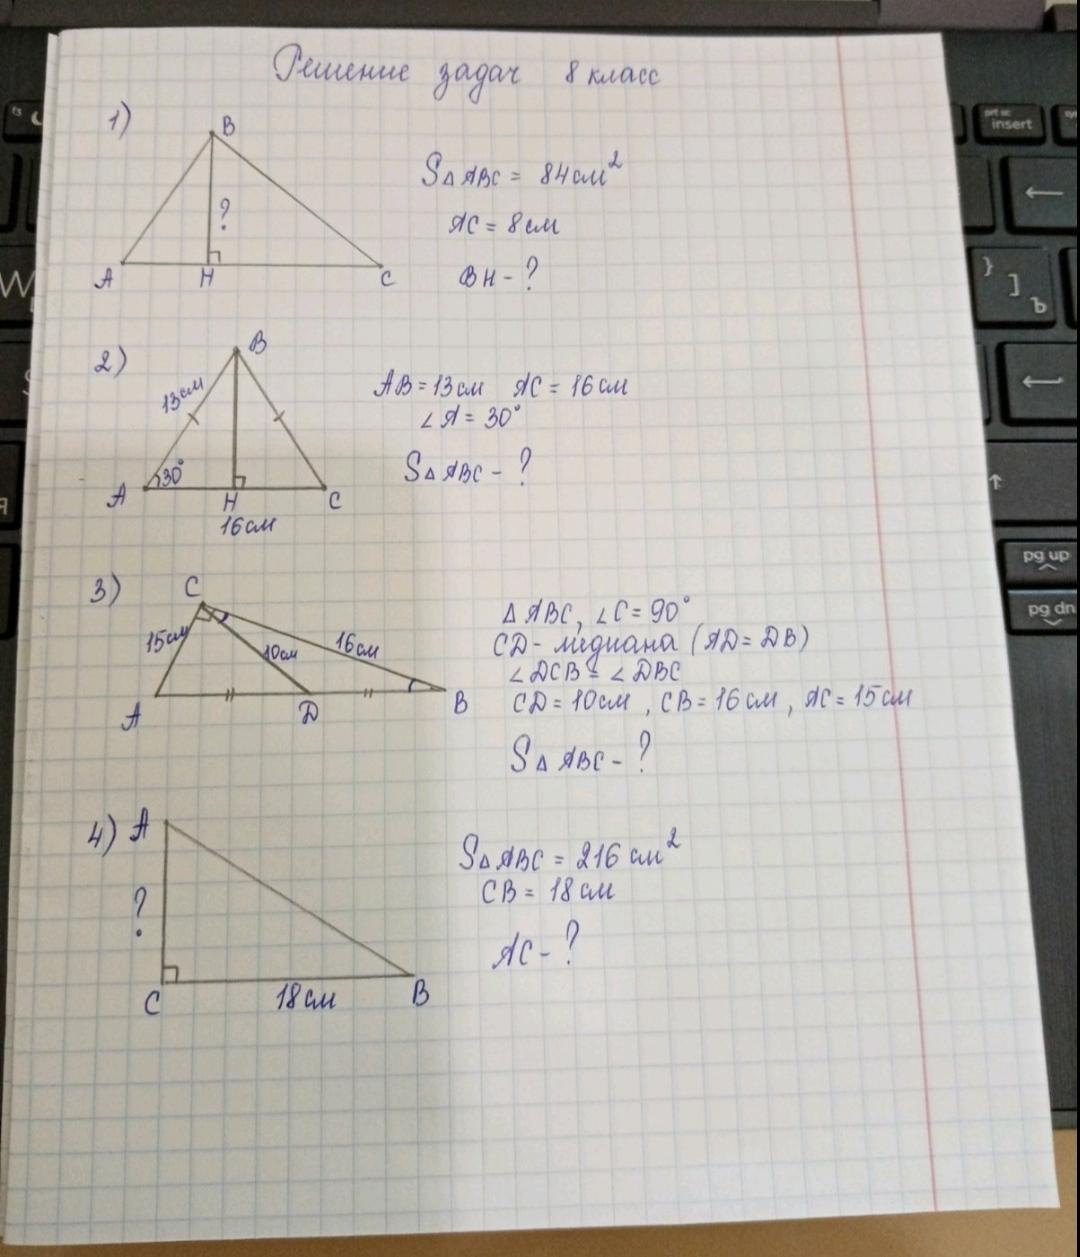 Решение задач 8 класс
1)
B
?
A H C
S△ABC = 84 см²
AC = 8 см
BH - ?
2)
B
13см
30°
A H C
16см
AB = 13 см AC = 16 см
∠A = 30°
S△ABC - ?
3)
C
15см 10см 16см
A D B
△ABC, ∠C = 90°
CD - медиана (AD = DB)
∠DCB = ∠DBC
CD = 10 см, CB = 16 см, AC = 15 см
S△ABC - ?
4)
A
?
C 18 см B
S△ABC = 216 см²
CB = 18 см
AC - ?
prt sc
insert
}
]
Ъ
W
pg up
pg dn